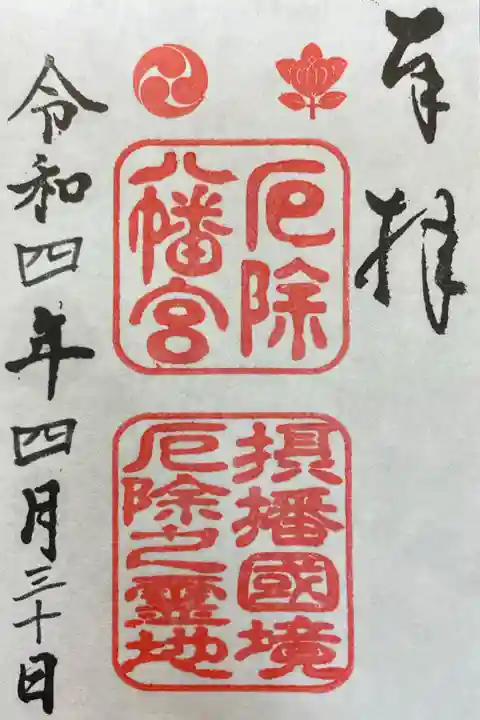 奉拝
厄除
八幡宮
摂播國境
厄除之霊地
令和四年四月三十日